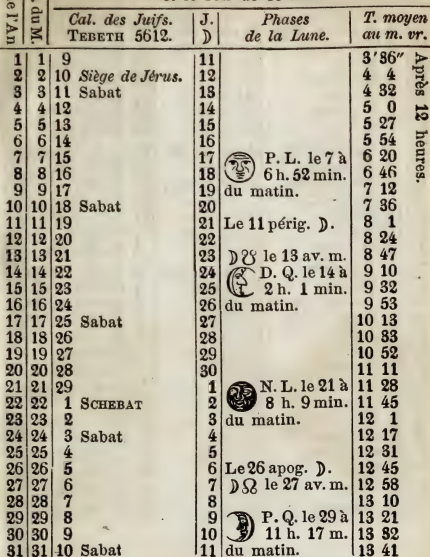 e l'An
. du M.
Cal. des Juifs. J. Phases T. moyen
TEBETH 5612. ☽ de la Lune. au m. vr.
1 1 9 11 3'36"
2 2 10 Siège de Jérus. 12 4 4
3 3 11 Sabat 13 4 32
4 4 12 14 5 0
5 5 13 15 5 27
6 6 14 16 5 54
7 7 15 17 P. L. le 7 à 6 20
8 8 16 18 6 h. 52 min. 6 46
9 9 17 19 du matin. 7 12
10 10 18 Sabat 20 7 36
11 11 19 21 Le 11 périg. ☽. 8 1
12 12 20 22 8 24
13 13 21 23 ☽☋ le 13 av. m. 8 47
14 14 22 24 D. Q. le 14 à 9 10
15 15 23 25 2 h. 1 min. 9 32
16 16 24 26 du matin. 9 53
17 17 25 Sabat 27 10 13
18 18 26 28 10 33
19 19 27 29 10 52
20 20 28 30 11 11
21 21 29 1 N. L. le 21 à 11 28
22 22 1 SCHEBAT 2 8 h. 9 min. 11 45
23 23 2 3 du matin. 12 1
24 24 3 Sabat 4 12 17
25 25 4 5 12 31
26 26 5 6 Le 26 apog. ☽. 12 45
27 27 6 7 ☽☊ le 27 av. m. 12 58
28 28 7 8 13 10
29 29 8 9 P. Q. le 29 à 13 21
30 30 9 10 11 h. 17 m. 13 32
31 31 10 Sabat 11 du matin. 13 41
Après 12 heures.